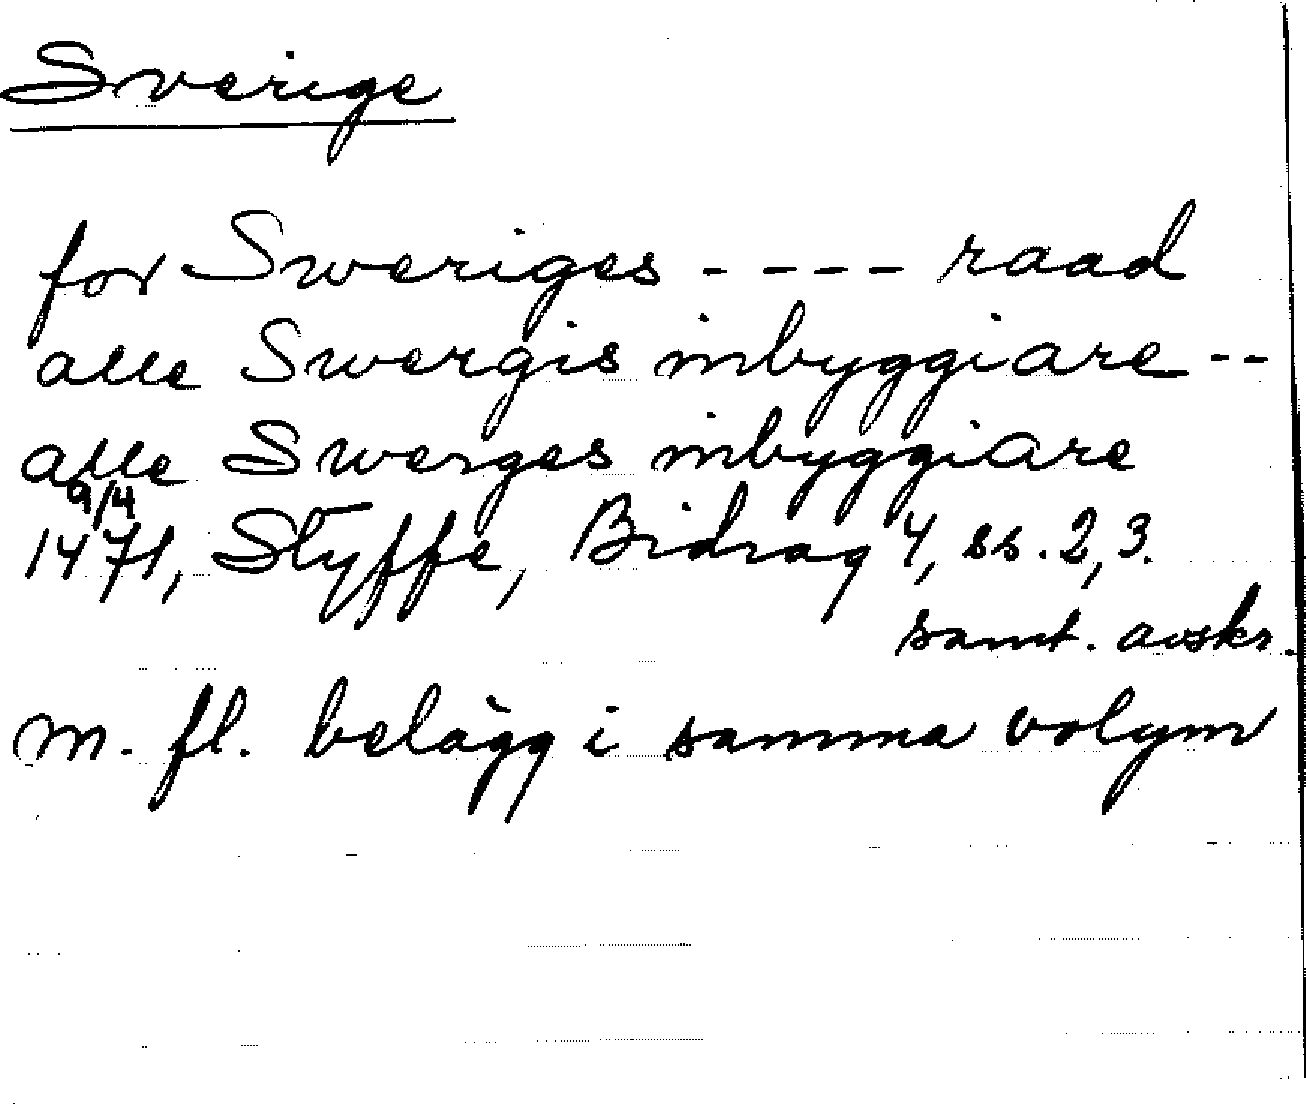 Sverige
for Sweriges - - - - raad
alle Swergis inbyggiare - -
alle Swerges inbyggiare
9/4
1471, Styffe, Bidrag 4, ss. 2, 3.
samt. avskr.
m. fl. belägg i samma volym